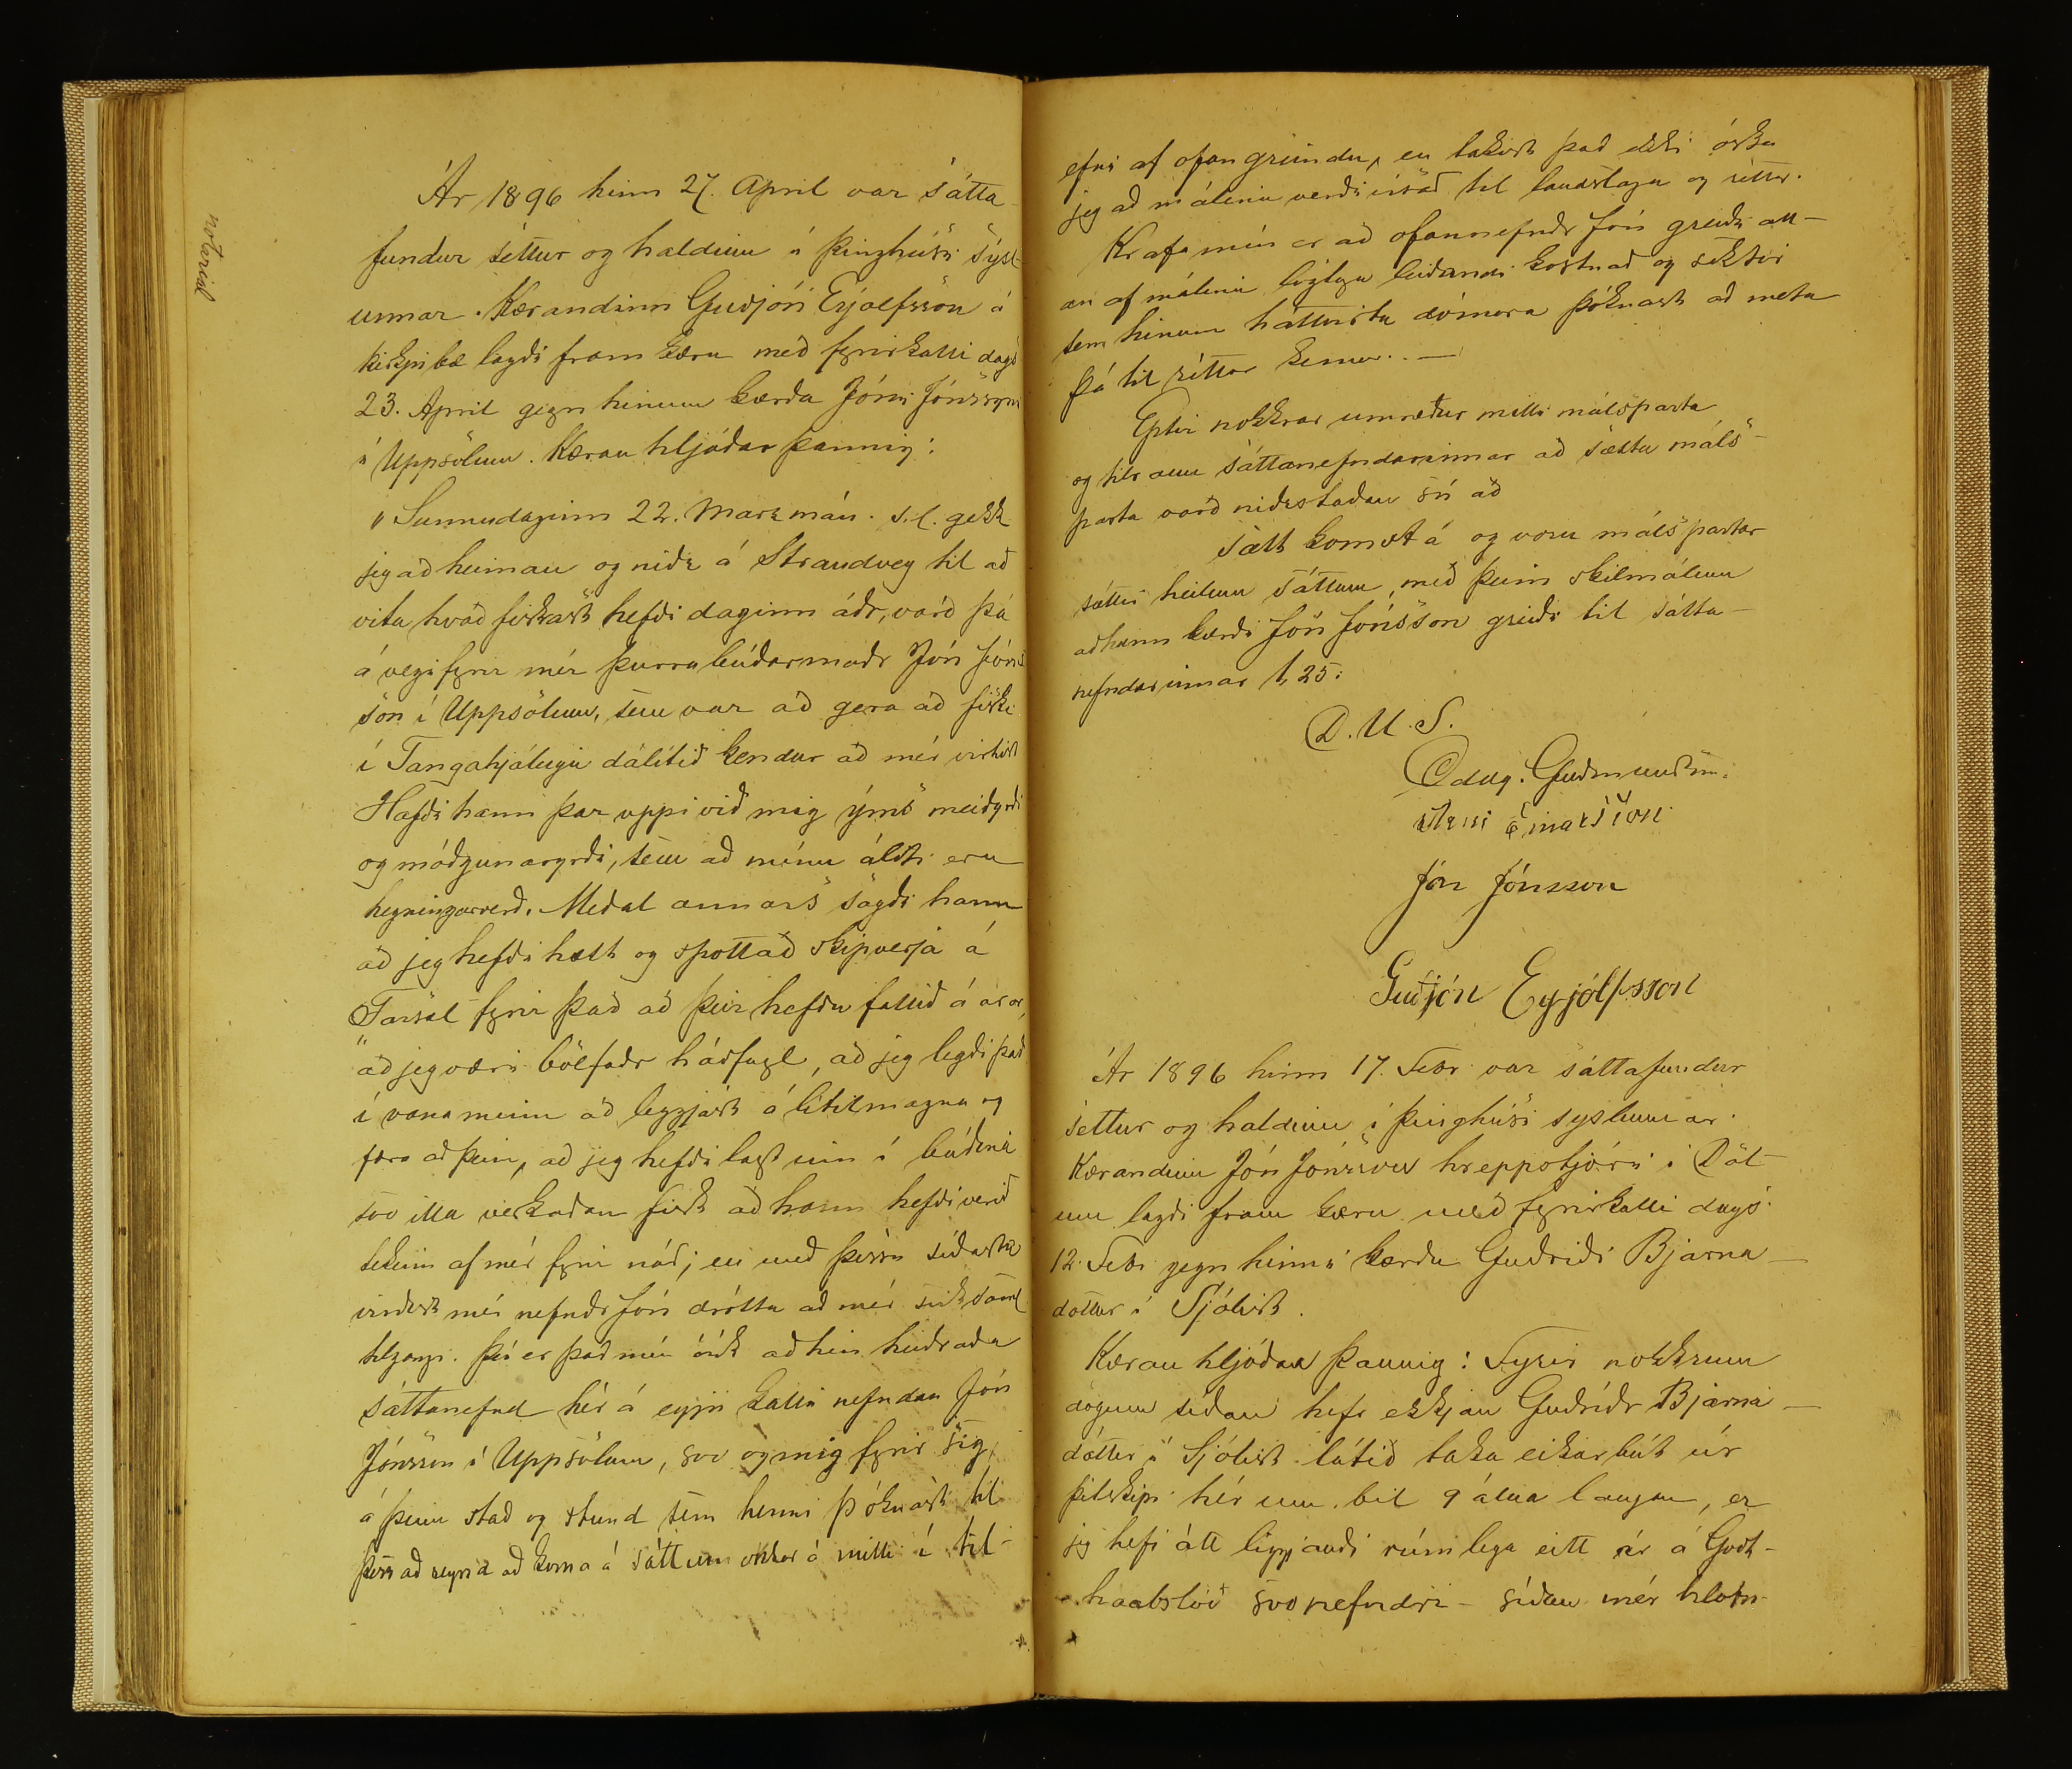 notarial
Ár 1896 hinn 27. April var sátta-
fundur settur og haldinn á þinghúsi sýsl-
unnar. Kærandinn Guðjón Eyjólfsson á
kirkjubæ lagði fram kæru með fyrirkalli dags
23. April gegn hinum kærða Jóni Jónssyni
á Uppsölum. Kæran hljóðar þannig:
"Sunnudaginn 22. Marz mán. s.l. gekk
jeg að heiman og niðr á Strandveg til að
vita hvað fiskast hefði daginn áðr, varð þá
á vegi fyrir mér þurrabúðarmaðr Jón Jóns
son í Uppsölum, sem var að gera að fiski
í Tangahjáleigu dálítið kendur að mér virtist
Hafði hann þar uppi við mig ýms meiðyrði
og móðgunaryrði, sem að mínu áliti eru
hegningarverð. Meðal annars sagði hann
að jeg hefði hætt og spottað skipverja á
Farsæl fyrir það að þeir hefðu fallið á árar,
að jeg væri bölfaðr háðfugl, að jeg legði það
í vana minn að leggjast á lítilmagna og
færa að þeim, að jeg hefði lagt inn í búðina
svo illa verkaðan fisk að hann hefði verið
tekinn af mér fyrir náð; en með þessu síðasta
virðist mér nefndr Jón drótta að mér sviksaml
tilgangi. Því er það mín ósk að hin heiðraða
sáttanefnd hér á eyju kalli nefndan Jón
Jónsson í Uppsölum, svo og mig fyrir sig,
á þeim stað og stund sem henni þóknast til
þess að reyna að koma á sáttum okkar á milli í til-
efni af ofangreindu, en takist það ekki óska
jeg að málinu verði vísað til landslaga og réttar.
Krafa mín er að ofannefndr Jón greiði all-
an af málinu löglega leiðandi kostnað og sektir
sem hinum háttvirta dómara þóknast að meta
þá til réttar kemur. —
Eptir nokkrar umræður milli málsparta
og tilraun sáttanefndarinnar að sætta máls-
parta varð niðrstaðan sú að
sætt komst á og voru málspartar
sáttir heilum sáttum, með þeim skilmálum
að hann kærði Jón Jónsson greiði til sátta-
nefndarinnar 1,25:
D.U.S.
Oddg. Guðmundsen.
Arni Einarsson
Jón Jónsson
Guðjón Eyjólfsson
Ár 1896 hinn 17. Febr var sáttafundur
settur og haldinn í þinghúsi syslunnar.
Kærandinn Jón Jónsson hreppstjóri í Döl-
um lagði fram kæru með fyrirkalli dags.
12. Febr gegn hinni kærðu Guðriði Bjarna-
dóttur í Sjólist.
Kæran hljóðar þannig: Fyrir nokkrum
dögum síðan hefr ekkjan Guðríðr Bjarna-
dóttir í Sjólist látið taka eikarbút úr
þilskipi hér um bil 9 álna langan, er
jeg hefi átt liggjandi rúmlega eitt ár á Godt-
haabslóð svo nefndri – síðan mér hlotn-